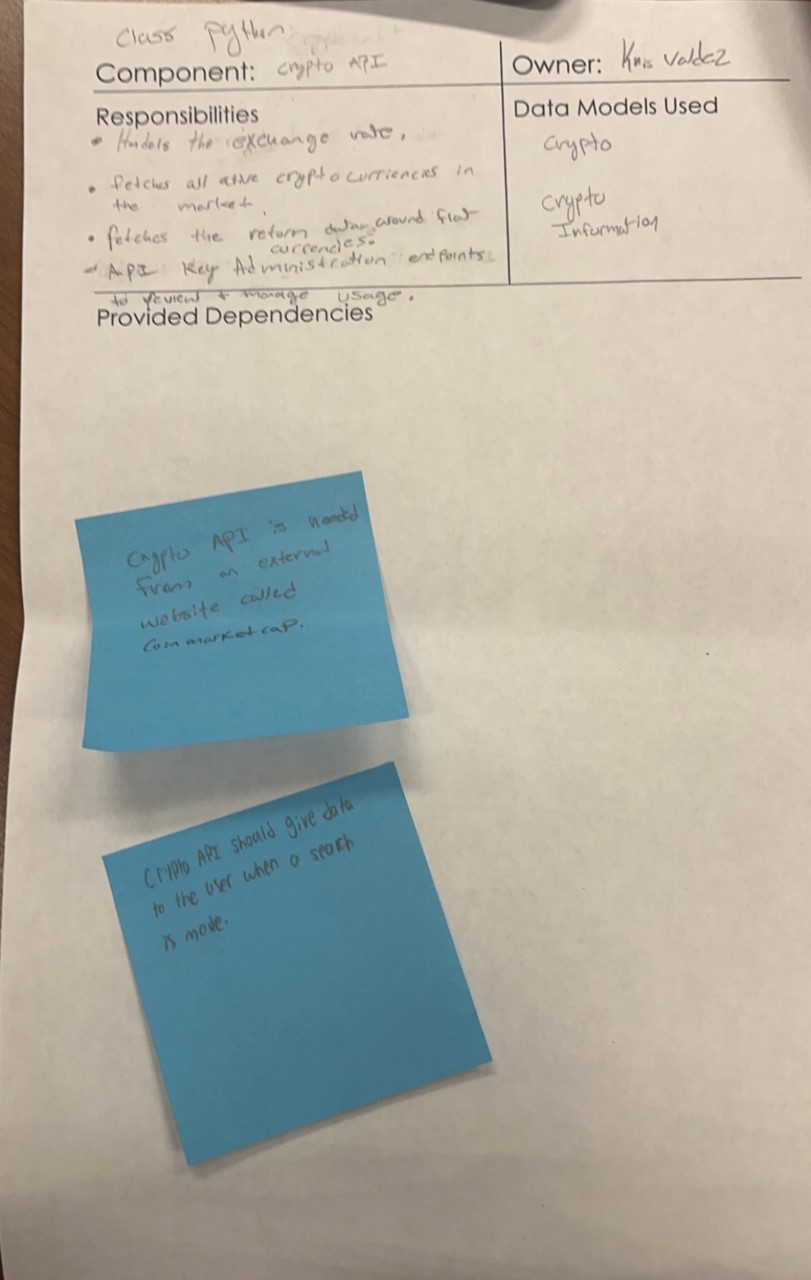 Class Python
Component: Crypto API
Owner: Kris Valdez
Responsibilities
• Handels the exchange rate.
• fetches all ative crypto curriencies in
the market.
• fetches the return data around fiat
currencies.
- API Key Administration endpoints
to review + manage usage.
Data Models Used
Crypto
Crypto
Information
Provided Dependencies
Crypto API is needed
from an external
website called
Coinmarketcap.
Crypto API should give data
to the user when a search
is made.